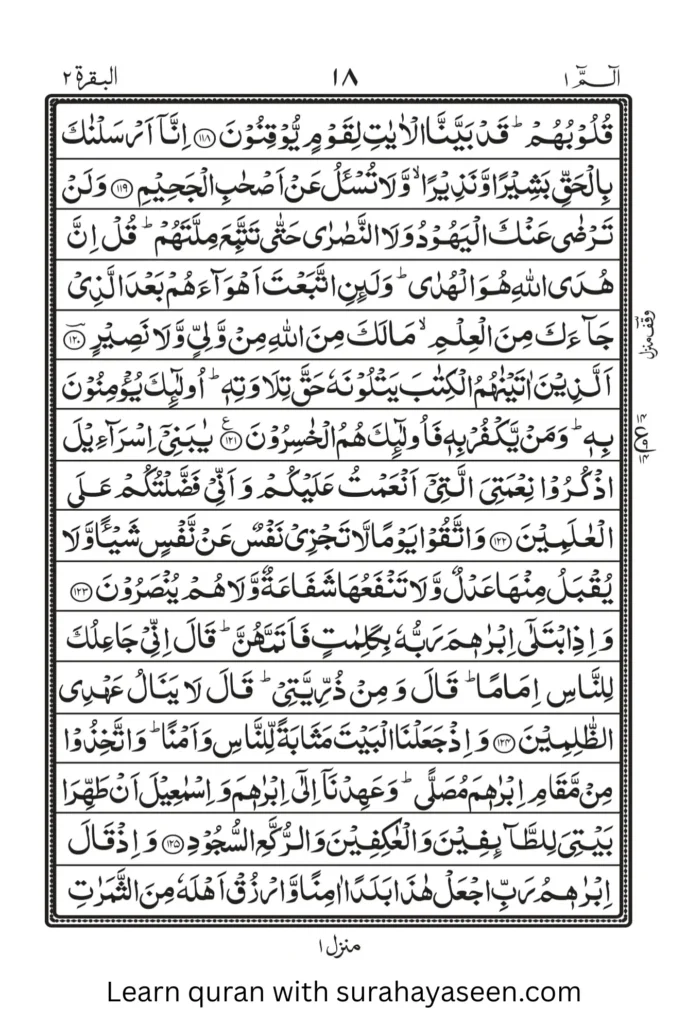 الٓمّٓ ١ ١٨ البقرة ٢
قُلُوۡبُهُمۡ ؕ قَدۡ بَيَّنَّا الۡاٰيٰتِ لِقَوۡمٍ يُّوۡقِنُوۡنَ ﴿۱۱۸﴾ اِنَّاۤ اَرۡسَلۡنٰكَ
بِالۡحَقِّ بَشِيۡرًا وَّنَذِيۡرًا ۙ وَّلَا تُسۡـَٔلُ عَنۡ اَصۡحٰبِ الۡجَحِيۡمِ ﴿۱۱۹﴾ وَلَنۡ
تَرۡضٰى عَنۡكَ الۡيَهُوۡدُ وَلَا النَّصٰرٰى حَتّٰى تَتَّبِعَ مِلَّتَهُمۡ ؕ قُلۡ اِنَّ
هُدَى اللّٰهِ هُوَ الۡهُدٰى ؕ وَلَٮِٕنِ اتَّبَعۡتَ اَهۡوَآءَهُمۡ بَعۡدَ الَّذِىۡ
جَآءَكَ مِنَ الۡعِلۡمِ ۙ مَا لَكَ مِنَ اللّٰهِ مِنۡ وَّلِىٍّ وَّلَا نَصِيۡرٍ ﴿۱۲۰﴾
اَلَّذِيۡنَ اٰتَيۡنٰهُمُ الۡكِتٰبَ يَتۡلُوۡنَهٗ حَقَّ تِلَاوَتِهٖ ؕ اُولٰٓٮِٕكَ يُؤۡمِنُوۡنَ
بِهٖ ؕ وَمَنۡ يَّكۡفُرۡ بِهٖ فَاُولٰٓٮِٕكَ هُمُ الۡخٰسِرُوۡنَ ﴿۱۲۱﴾ يٰبَنِىۡٓ اِسۡرَآءِيۡلَ
اذۡكُرُوۡا نِعۡمَتِىَ الَّتِىۡٓ اَنۡعَمۡتُ عَلَيۡكُمۡ وَاَنِّىۡ فَضَّلۡتُكُمۡ عَلَى
الۡعٰلَمِيۡنَ ﴿۱۲۲﴾ وَاتَّقُوۡا يَوۡمًا لَّا تَجۡزِىۡ نَفۡسٌ عَنۡ نَّفۡسٍ شَيۡـًٔا وَّلَا
يُقۡبَلُ مِنۡهَا عَدۡلٌ وَّلَا تَنۡفَعُهَا شَفَاعَةٌ وَّلَا هُمۡ يُنۡصَرُوۡنَ ﴿۱۲۳﴾
وَاِذِ ابۡتَلٰٓى اِبۡرٰهٖمَ رَبُّهٗ بِكَلِمٰتٍ فَاَتَمَّهُنَّ ؕ قَالَ اِنِّىۡ جَاعِلُكَ
لِلنَّاسِ اِمَامًا ؕ قَالَ وَمِنۡ ذُرِّيَّتِىۡ ؕ قَالَ لَا يَنَالُ عَهۡدِى
الظّٰلِمِيۡنَ ﴿۱۲۴﴾ وَاِذۡ جَعَلۡنَا الۡبَيۡتَ مَثَابَةً لِّلنَّاسِ وَاَمۡنًا ؕ وَاتَّخِذُوۡا
مِنۡ مَّقَامِ اِبۡرٰهٖمَ مُصَلًّى ؕ وَعَهِدۡنَآ اِلٰٓى اِبۡرٰهٖمَ وَاِسۡمٰعِيۡلَ اَنۡ طَهِّرَا
بَيۡتِىَ لِلطَّآٮِٕفِيۡنَ وَالۡعٰكِفِيۡنَ وَالرُّكَّعِ السُّجُوۡدِ ﴿۱۲۵﴾ وَاِذۡ قَالَ
اِبۡرٰهٖمُ رَبِّ اجۡعَلۡ هٰذَا بَلَدًا اٰمِنًا وَّارۡزُقۡ اَهۡلَهٗ مِنَ الثَّمَرٰتِ
وقف منزل
منزل ١
Learn quran with surahayaseen.com